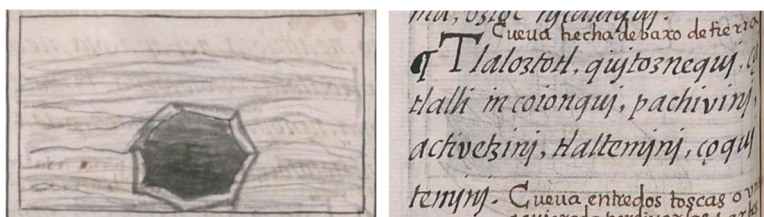 ma, oztoc nicalaquj.
Cueua hecha debaxo de tierra
¶ Tlaloztotl, qujtoznequj,
tlalli in coionquj, pachivinj,
activetzinj, tlaltemjnj, çoquj
temjnj. Cueua entre dos toscas o